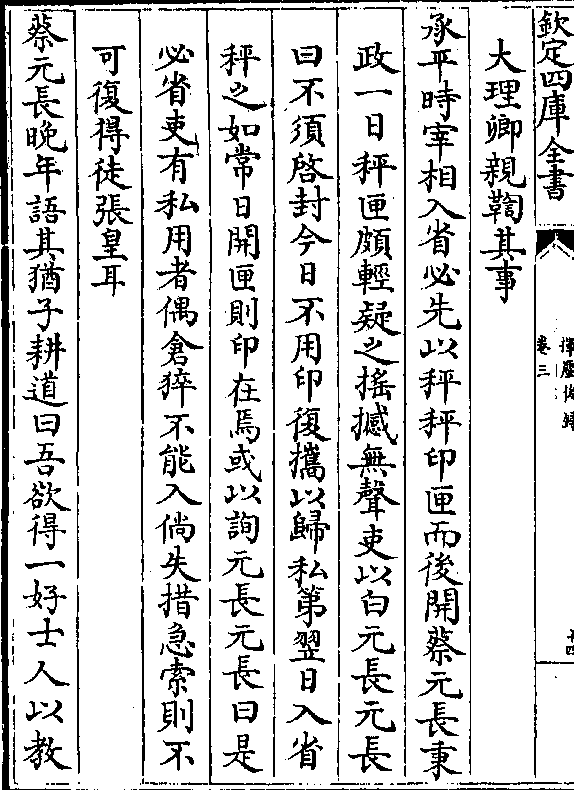 欽定四庫全書
卷三
大理卿親鞫其事
承平時宰相入省必先以秤秤印匣而後開蔡元長秉
政一日秤匣頗輕疑之搖撼無聲吏以白元長元長
曰不須啓封今日不用印復攜以歸私第翌日入省
秤之如常日開匣則印在焉或以詢元長元長曰是
必省吏有私用者偶倉猝不能入倘失措急索則不
可復得徒張皇耳
蔡元長晚年語其猶子耕道曰吾欲得一好士人以教